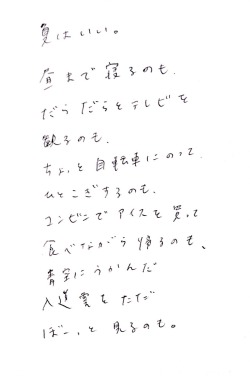 夏はいい。
昼まで寝るのも、
だらだらとテレビを
観るのも、
ちょっと自転車にのって、
ひとこぎするのも、
コンビニでアイスを買って
食べながら帰るのも、
青空にうかんだ
入道雲をただ
ぼーっと見るのも。